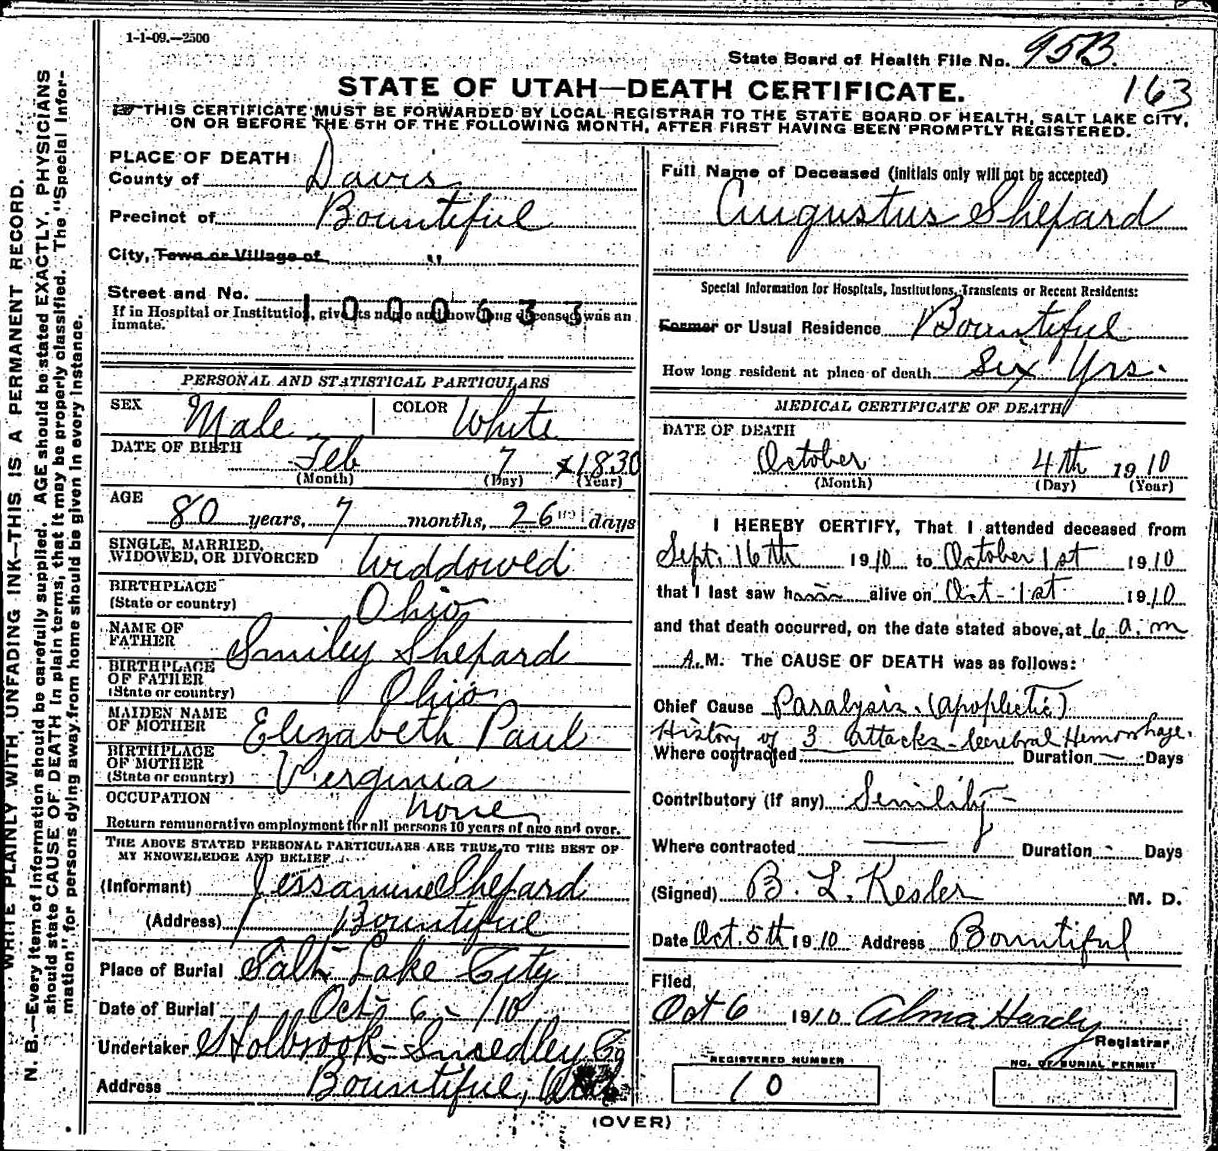 1-1-09.—2500
State Board of Health File No. 95B.
163
STATE OF UTAH—DEATH CERTIFICATE.
THIS CERTIFICATE MUST BE FORWARDED BY LOCAL REGISTRAR TO THE STATE BOARD OF HEALTH, SALT LAKE CITY,
ON OR BEFORE THE 5TH OF THE FOLLOWING MONTH, AFTER FIRST HAVING BEEN PROMPTLY REGISTERED.
WRITE PLAINLY WITH UNFADING INK—THIS IS A PERMANENT RECORD.
N. B.—Every item of information should be carefully supplied. AGE should be stated EXACTLY. PHYSICIANS
should state CAUSE OF DEATH in plain terms, that it may be properly classified. The "Special Infor-
mation" for persons dying away from home should be given in every instance.
PLACE OF DEATH:
County of Davis
Precinct of Bountiful
City, Town or Village of "
Street and No.
1000633
If in Hospital or Institution, give its name and how long deceased was an
inmate.
PERSONAL AND STATISTICAL PARTICULARS
SEX Male COLOR White
DATE OF BIRTH Feb 7 1830
(Month) (Day) (Year)
AGE
80 years, 7 months, 26 days
SINGLE, MARRIED,
WIDOWED, OR DIVORCED Widdowed
BIRTHPLACE
(State or country) Ohio
NAME OF
FATHER Smiley Shepard
BIRTHPLACE
OF FATHER
(State or country) Ohio
MAIDEN NAME
OF MOTHER Elizabeth Paul
BIRTHPLACE
OF MOTHER
(State or country) Virginia
OCCUPATION none
Return remunerative employment for all persons 10 years of age and over.
THE ABOVE STATED PERSONAL PARTICULARS ARE TRUE TO THE BEST OF
MY KNOWLEDGE AND BELIEF
(Informant) Jessamine Shepard
(Address) Bountiful
Place of Burial Salt Lake City
Date of Burial Oct- 6 - /10
Undertaker Holbrook- Co
Address Bountiful, Utah
Full Name of Deceased (initials only will not be accepted)
Augustus Shepard
Special Information for Hospitals, Institutions, Transients or Recent Residents:
Former or Usual Residence Bountiful
How long resident at place of death Six Yrs.
MEDICAL CERTIFICATE OF DEATH
DATE OF DEATH
October 4th 1910
(Month) (Day) (Year)
I HEREBY CERTIFY, That I attended deceased from
Sept. 16th 1910 to October 1st 1910
that I last saw him alive on Oct- 1st 1910
and that death occurred, on the date stated above, at 6 a.m
A. M. The CAUSE OF DEATH was as follows:
Chief Cause Paralysis. (apoplectic)
History of 3 attacks - Cerebral Hemorrhage.
Where contracted Duration — Days
Contributory (if any) Senility -
Where contracted Duration - Days
(Signed) B. L. Kesler M. D.
Date Oct. 5th 1910 Address Bountiful
Filed,
Oct 6 1910 Alma Hardy
Registrar
REGISTERED NUMBER
10
NO. OF BURIAL PERMIT
(OVER)